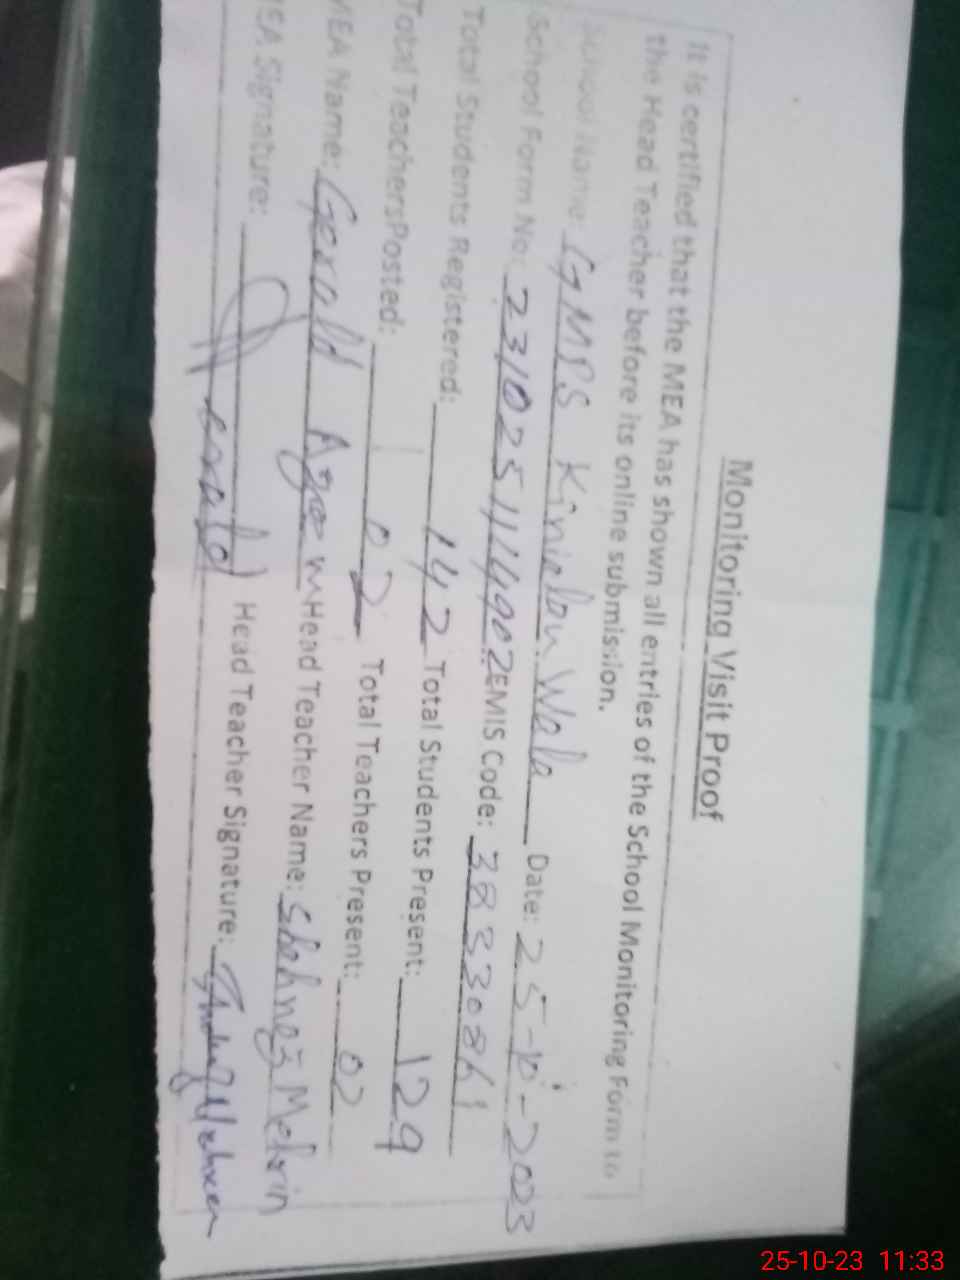 Monitoring Visit Proof
It is certified that the MEA has shown all entries of the School Monitoring Form to
the Head Teacher before its online submission.
School Name: GMPS Date: 25-10-2023
School Form No: 2310251114902 EMIS Code: 38330861
Total Students Registered: 142 Total Students Present: 129
Total TeachersPosted: 02 Total Teachers Present: 02
MEA Name: Gerald Head Teacher Name: Shahnaz
MEA Signature: Gerald Head Teacher Signature:
25-10-23 11:33